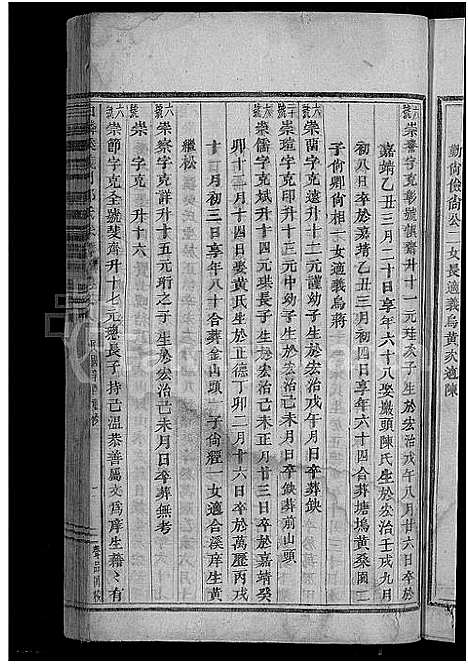 勤尚儉尚公一女長適義烏黃次適陳
崇 字克彰號 齋升十一元珪次子生於宏治戊午八月廿六日卒於
嘉靖乙丑三月二十日享年六十八娶巖頭陳氏生於宏治壬戌九月
初八日卒於嘉靖乙丑三月初四日享年六十四合葬塘塢黃桑園二
子尚卿尚相一女適義烏蔣
崇蘭字克遠升十二元謹幼子生於宏治戊午月日卒葬缺
崇瑄字克 升十三元中幼子生於宏治己未月日卒缺葬前山頭
崇儒字克斌升十四元琪長子生於宏治己未正月廿三日卒於嘉靖癸
卯十二月十四日娶黃氏生於正德丁卯二月十六日卒於萬歷丙戌
十二月初三日享年八十合葬金山頭一子尚 一女適合溪庠生黃
繼松
崇察字克詳升十五元珩之子生於宏治己未月日卒葬無考
崇 字克 升十六
崇節字克全號斐齋升十七元璁長子持己溫恭善屬文為庠生籍籍有